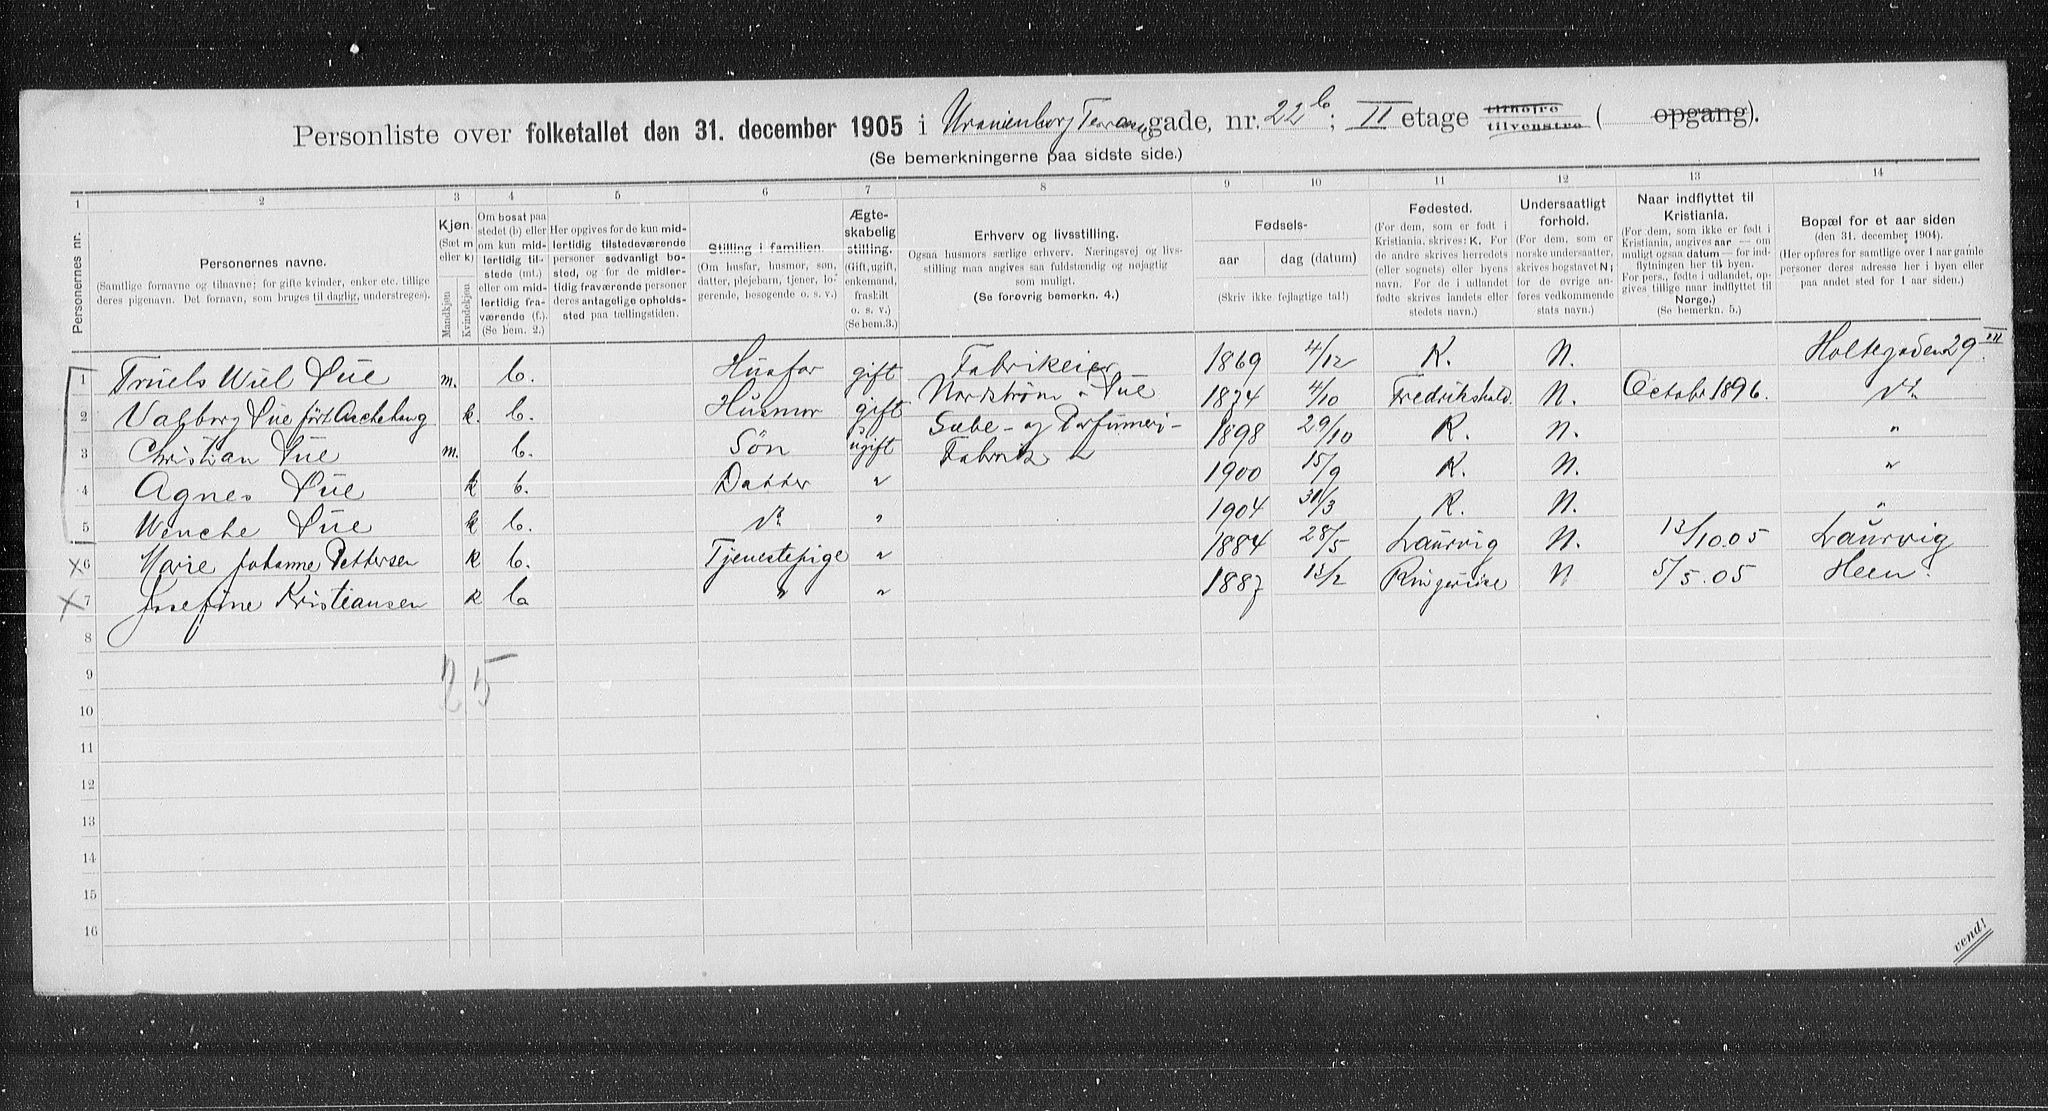 Personliste over folketallet den 31. december 1905 i Uranienborg Terrasse gade, nr. 22 b; II etage tilhøjre tilvenstre ( opgang).
(Se bemerkningerne paa sidste side.)
1 2 3 4 5 6 7 8 9 10 11 12 13 14
Personernes nr.
Personernes navne.
(Samtlige fornavne og tilnavne; for gifte kvinder, enker etc. tillige
deres pigenavn. Det fornavn, som bruges til daglig, understreges).
Kjøn.
(Sæt m
eller k)
Mandkjøn
Kvindekjøn
Om bosat paa
stedet (b) eller
om kun mid-
lertidig til-
stede (mt.)
eller om mid-
lertidig fra-
værende (f.).
(Se bem. 2.)
Her opgives for de kun mid-
lertidig tilstedeværende
personer sedvanligt bo-
sted, og for de midler-
tidig fraværende personer
deres antagelige opholds-
sted paa tællingstiden.
Stilling i familien.
(Om husfar, husmor, søn,
datter, plejebarn, tjener, lo-
gerende, besøgende o. s. v.)
Ægte-
skabelig
stilling.
(Gift, ugift,
enkemand,
fraskilt
o. s. v.)
(Se bem. 3.)
Erhverv og livsstilling.
Ogsaa husmors særlige erhverv. Næringsvej og livs-
stilling maa angives saa fuldstændig og nøjagtig
som muligt.
(Se forøvrig bemerkn. 4.)
Fødsels-
aar dag (datum)
(Skriv ikke fejlagtige tal!)
Fødested.
(For dem, som er født i
Kristiania, skrives: K. For
de andre skrives herredets
(eller sognets) eller byens
navn. For de i udlandet
fødte skrives landets eller
stedets navn.)
Undersaatligt
forhold.
(For dem, som er
norske undersaatter,
skrives bogstavet N;
for de øvrige an-
føres vedkommende
stats navn.)
Naar indflyttet til
Kristiania.
(For dem, som ikke er født i
Kristiania, angives aar — om
muligt ogsaa datum — for ind-
flytningen her til byen.
For pers., fødte i udlandet, op-
gives tillige naar indflyttet til
Norge.)
(Se bemerkn. 5.)
Bopæl for et aar siden
(den 31. december 1904).
(Her opføres for samtlige over 1 aar gamle
personer deres adresse her i byen eller
paa andet sted for 1 aar siden.)
1 Truels Wiel Sue m. b. Husfar gift Fabrikeier 1869 4/12 K. N. Holtegaden 29 III
2 Valborg Sue født Aschehoug k. b. Husmor gift Nordstrøm & Sue 1874 4/10 Fredrikshald N. October 1896. do
3 Christian Sue m. b. Søn ugift Sæbe- og Parfumeri- 1898 29/10 K. N. "
Fabrik
4 Agnes Sue k b. Datter " 1900 15/9 K. N. "
5 Wenche Sue k b. do " 1904 31/3 K. N. "
x 6 Marie Johanne Pettersen k b. Tjenestepige " 1884 28/5 Laurvig N. 13/10.05 Laurvig
x 7 Josefine Kristiansen k b " " 1887 13/2 Ringerike N 5/5.05 Heen.
8
9 2 5
10
11
12
13
14
15
16
vend!